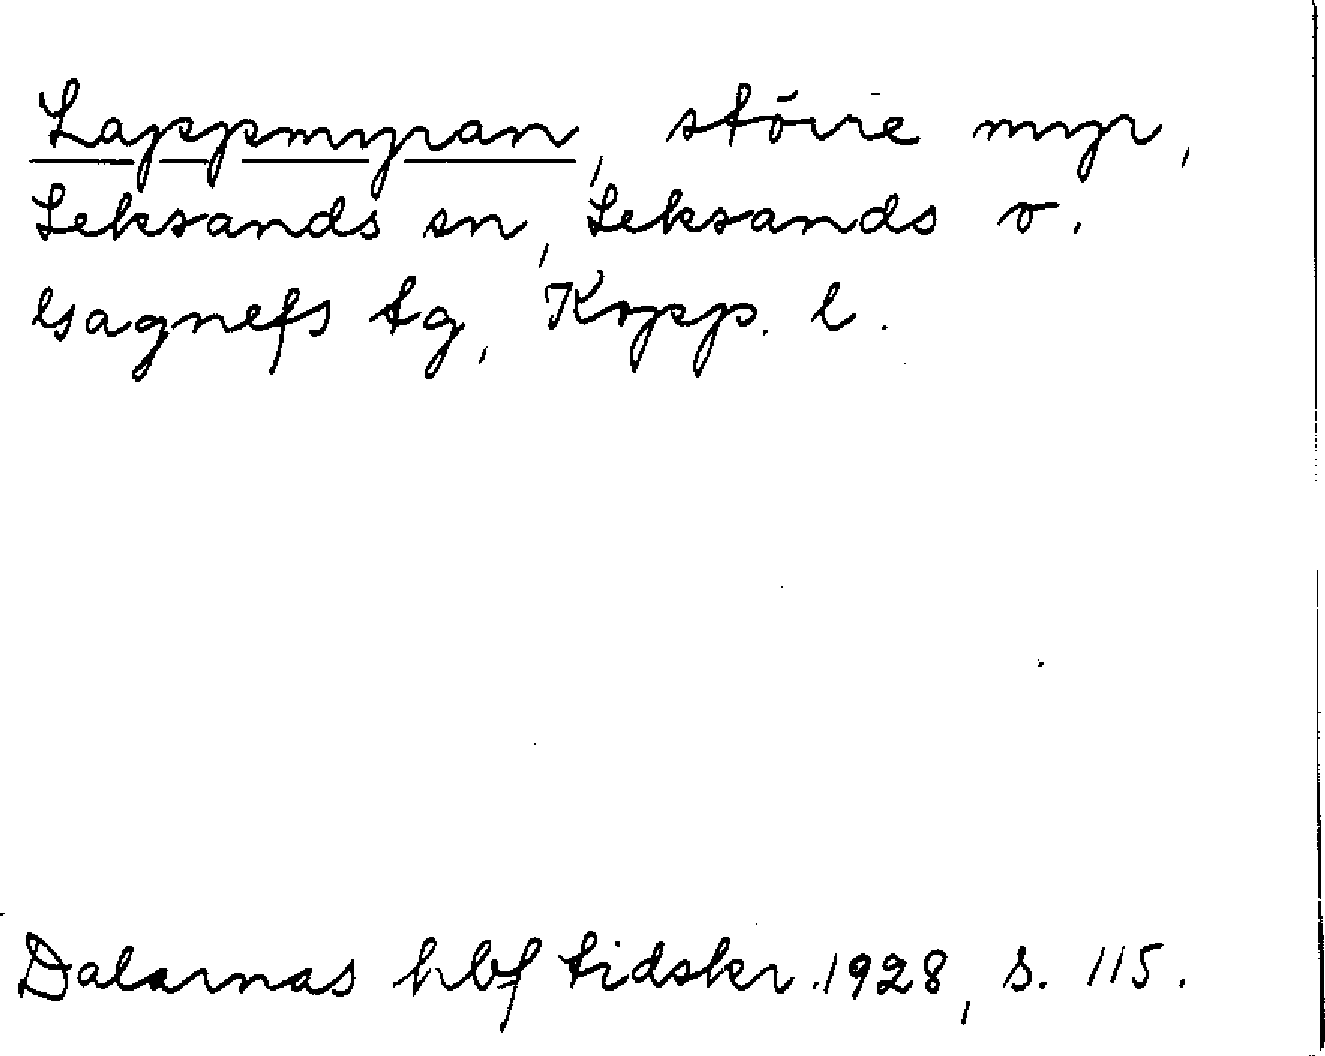 Lappmyran, större myr,
Leksands sn, Leksands o.
Gagnefs tg, Kopp. l.
Dalarnas hbf tidskr. 1928, s. 115.